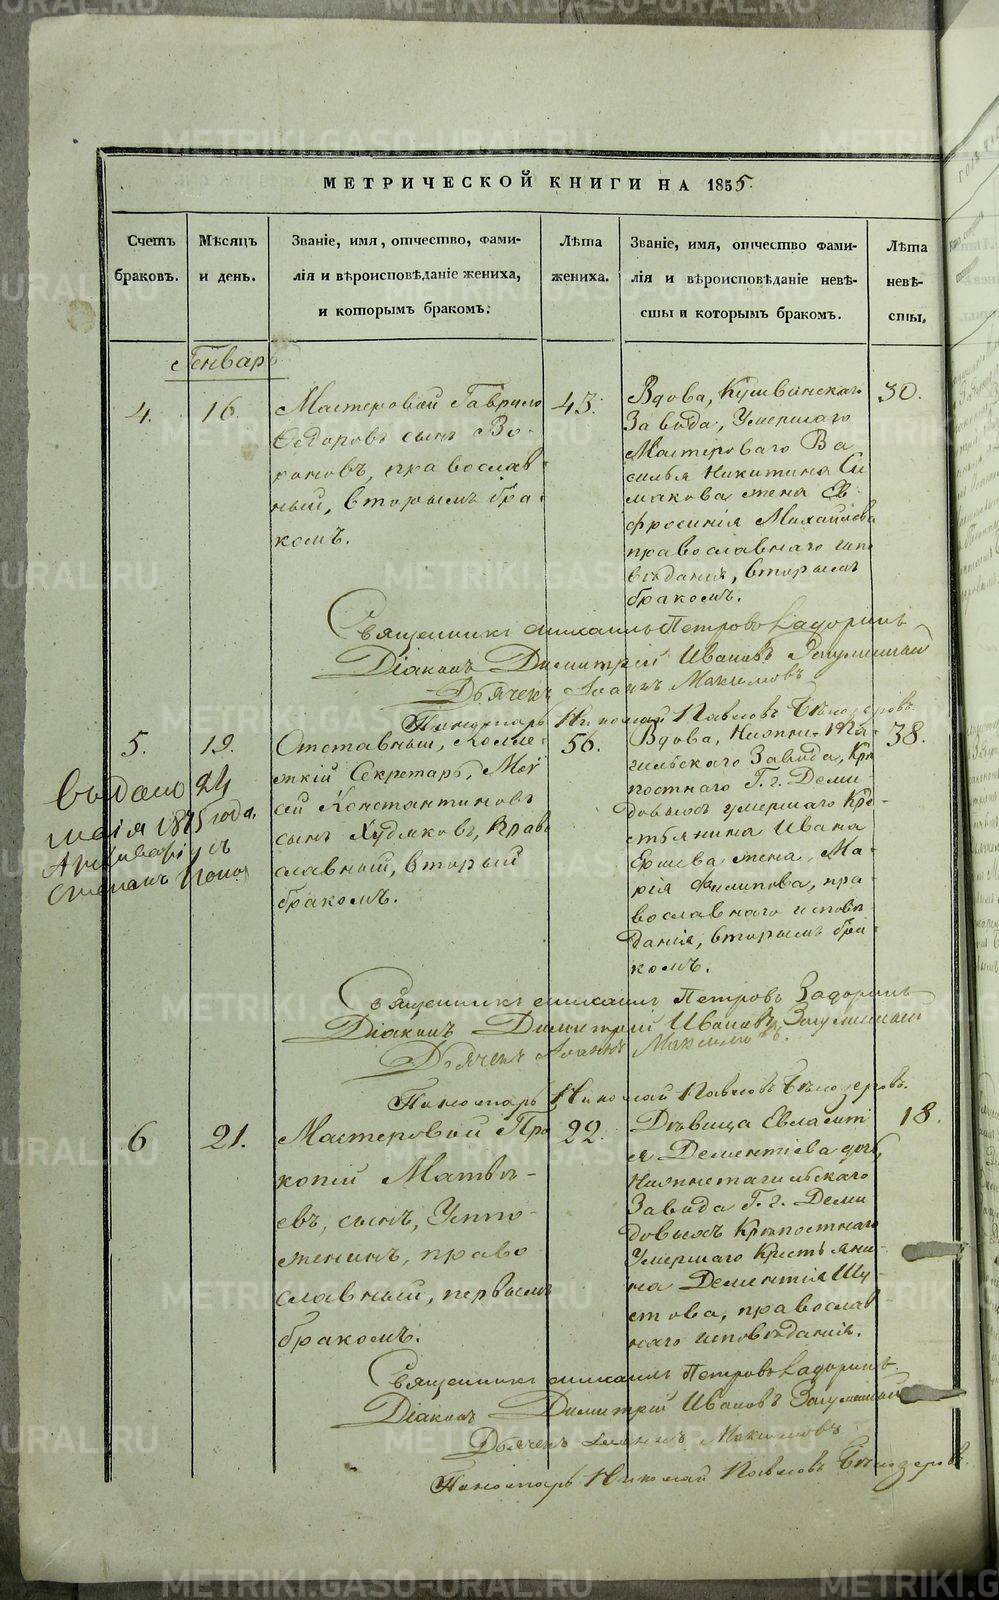 МЕТРИЧЕСКОЙ КНИГИ НА 1855.
Счетъ браковъ.
Мѣсяцъ и день.
Званіе, имя, отчество, фами-
лія и вѣроисповѣданіе жениха,
и которымъ бракомъ.
Лѣта жениха.
Званіе, имя, отчество фами-
лія и вѣроисповѣданіе невѣ-
сты и которымъ бракомъ.
Лѣта невѣ-
сты.
Генварь
4.
16.
Мастеровой Гаврило
Ѳедоровъ сынъ Во-
роновъ, православ-
ный, вторымъ бра-
комъ.
43.
Вдова, Кушвинскаго
Завода, Умершаго
Мастероваго Ва
силья Никитина Си
макова жена Ев-
фросинія Михайлова
православнаго испо
вѣданія, вторымъ
бракомъ.
30.
Священникъ Михаилъ Петровъ Задоринъ
Діаконъ Димитрій Ивановъ
Дьячекъ Іоаннъ Максимовъ
Пономарь Николай Павловъ Бѣлозеровъ.
5.
19.
Отставный, Колле-
жкій Секретарь, Мой
сей Константиновъ
сынъ Худяковъ, Право
славный, вторый
бракомъ.
56.
Вдова, Нижне-Та
гильскаго Завода, Крѣ
постнаго Г. г. Деми-
довыхъ умершаго Кре-
стьянина Ивана
Ершева жена, Ма-
рія Филипова, пра-
вославнаго исповѣ
данія, вторымъ бра-
комъ.
38.
Выдано 24
1875 года.
Архиварі
Степанъ Попов
Священникъ Михаилъ Петровъ Задоринъ
Діаконъ Димитрій Ивановъ
Дьячекъ Іоаннъ Максимовъ.
Пономарь Николай Павловъ Бѣлозеровъ.
6
21.
Мастеровой Про
копій Матвѣ-
евъ, сынъ,
православ
славный, первымъ
бракомъ.
22.
Дѣвица Евласті
я Дементіева дочь,
Нижнетагильскаго
Завода Г. г. Деми
довыхъ Крѣпостнаго
Умершаго Крестьяни-
на Дементія Шу
стова, православ
наго исповѣданія.
18.
Священникъ Михаилъ Петровъ Задоринъ
Діаконъ Димитрій Ивановъ
Дьячекъ Іоаннъ Максимовъ
Пономарь Николай Павловъ Бѣлозеровъ.
METRIKI.GASO-URAL.RU